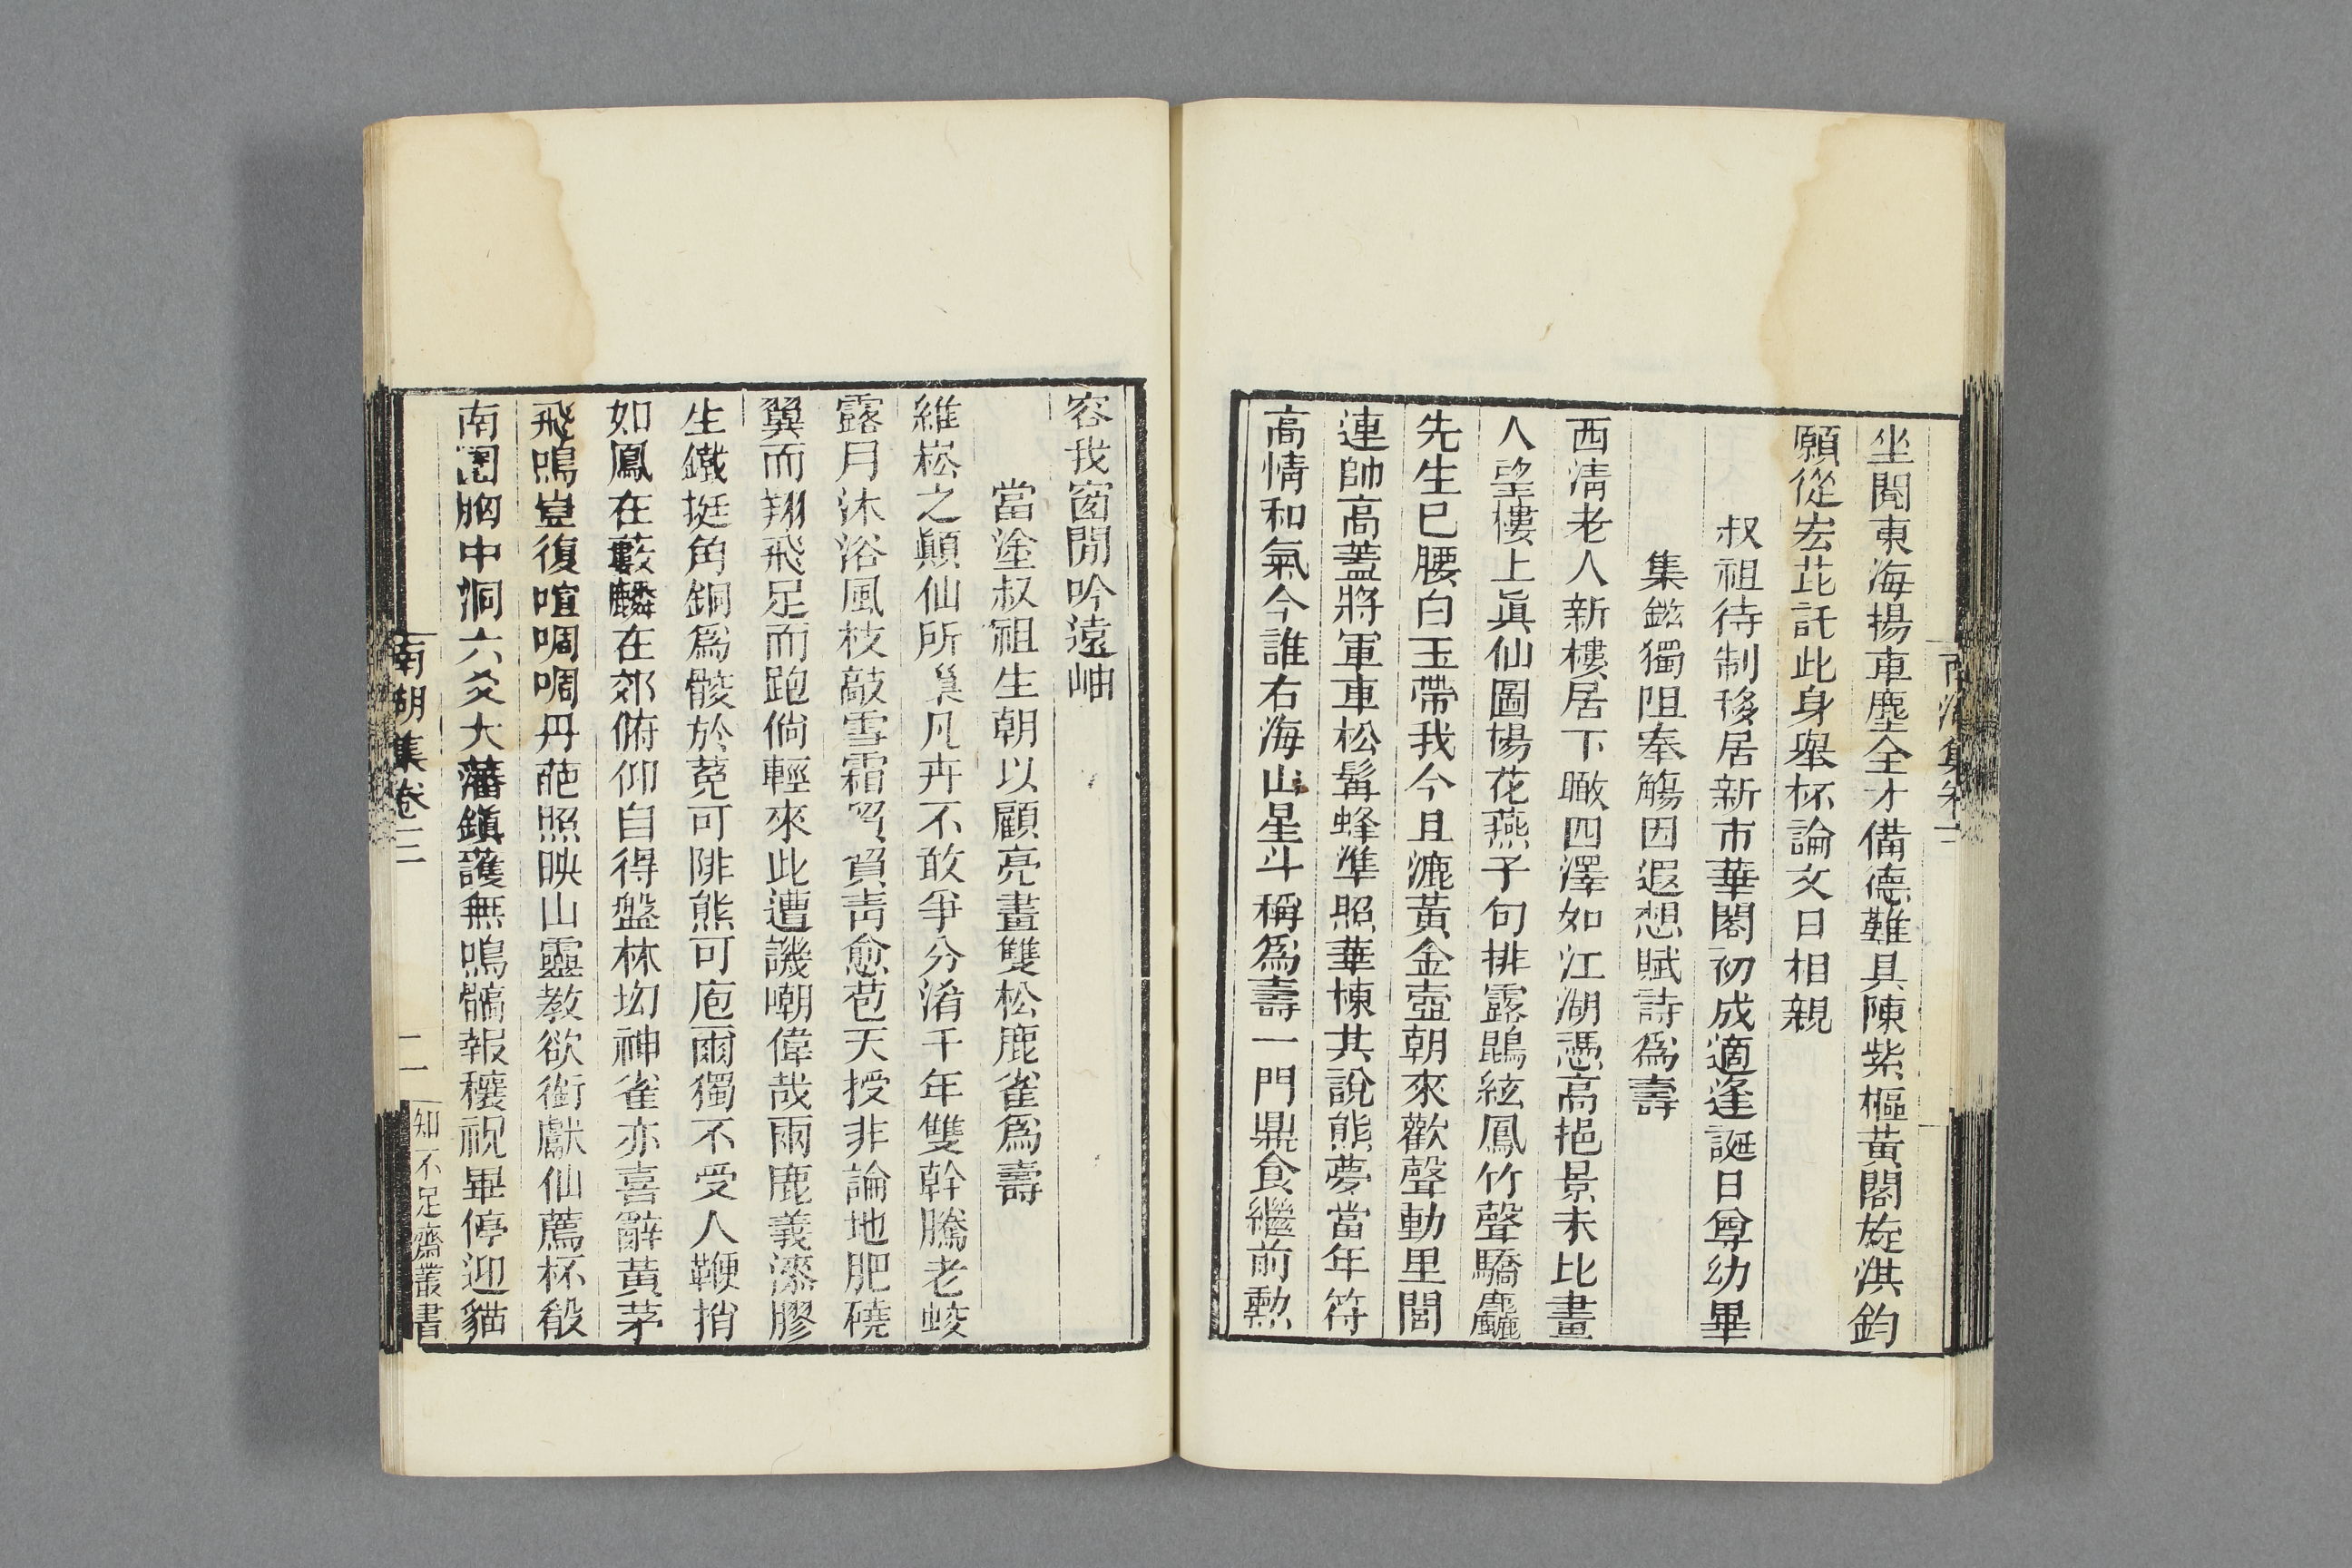 坐閲東海揚車塵全才備德難具陳紫樞黃閣旋洪鈞
願從宏芘託此身舉杯論文日相親
叔祖待制移居新市華閣初成適逢誕日尊幼畢
集鎡獨阻奉觴因遐想賦詩爲壽
西淸老人新樓居下瞰四澤如江湖憑高挹景未比畫
人望樓上眞仙圖楊花燕子句排露鵾絃鳳竹聲驕麤
先生已腰白玉帶我今且漉黃金壺朝來歡聲動里閭
連帥高蓋將軍車松髯蜂準照華棟共說熊夢當年符
高情和氣今誰右海山星斗稱爲壽一門鼎食繼前勲
容我窗閒吟遠岫
當塗叔祖生朝以顧亮畫雙松鹿雀爲壽
維崧之顚仙所巢凡卉不敢爭分淆千年雙幹騰老蛟
露月沐浴風枝敲雪霜 貿靑愈苞天授非論地肥磽
翼而翔飛足而跑倘輕來此遭譏嘲偉哉兩鹿義漆膠
生鐵挺角銅爲骹於菟可陪熊可庖爾獨不受人鞭捎
如鳳在藪麟在郊俯仰自得盤林坳神雀亦喜辭黃茅
飛鳴豈復喧啁啁丹葩照映山靈教欲銜獻仙薦杯殽
南園胸中洞六爻大藩鎭護無鳴髇報穰祝畢停迎貓
南湖集卷三
二
知不足齋叢書